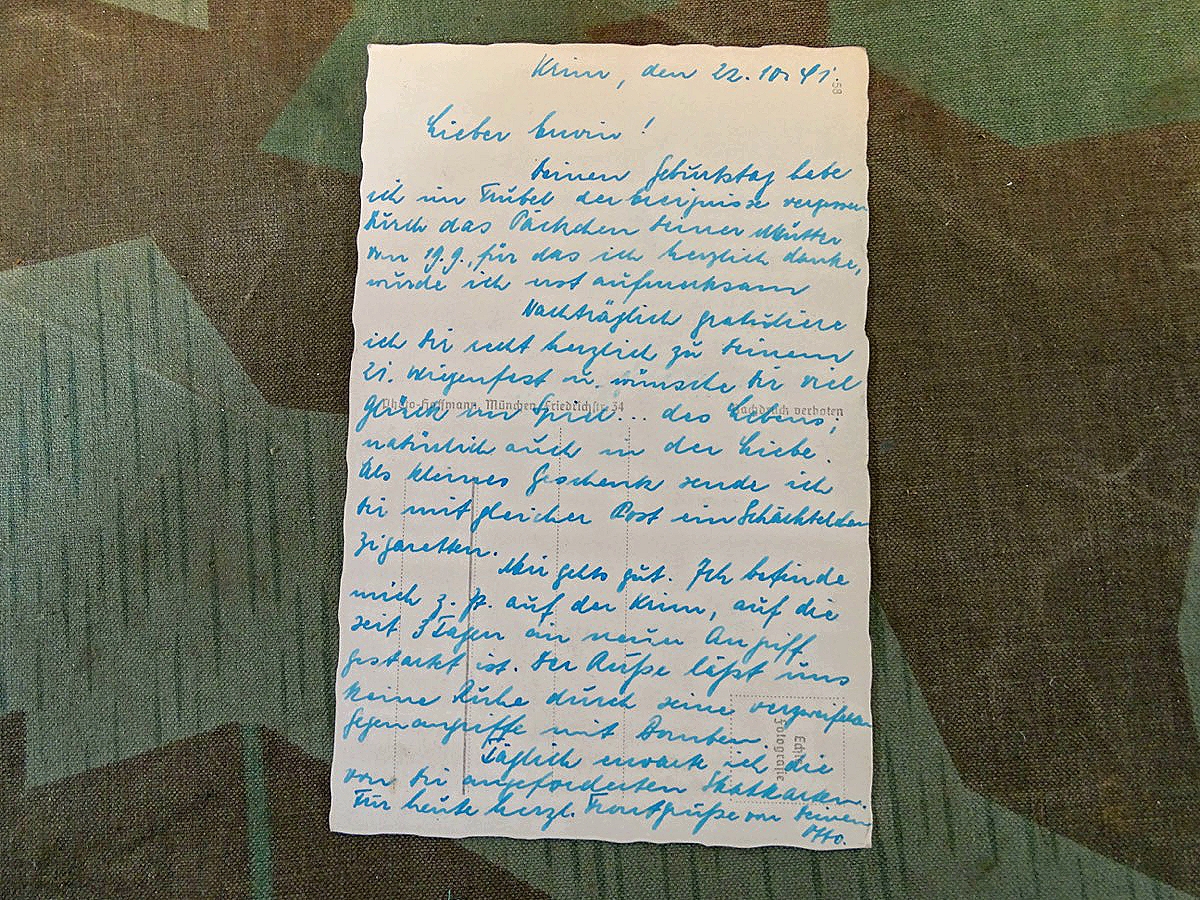 Krim, den 22.10.41.
58
Lieber Erwin!
Deinen Geburtstag habe
ich im Trubel der Ereignisse vergessen
Durch das Päckchen Deiner Mutter
vom 19.9., für das ich herzlich danke,
wurde ich erst aufmerksam
Nachträglich gratuliere
ich Dir recht herzlich zu Deinem
21. Wiegenfest u. wünsche Dir viel
Photo-Hoffmann, München, Friedrichstr. 34
Nachdruck verboten
Glück im Spiel... des Lebens,
natürlich auch in der Liebe.
Als kleines Geschenk sende ich
Dir mit gleicher Post ein Schächtelchen
Zigaretten.
Mir gehts gut. Ich befinde
mich z. Zt. auf der Krim, auf die
seit 3 Tagen ein neuer Angriff
gestartet ist. Der Ruße läßt uns
keine Ruhe durch seine verzweifelten
Gegenangriffe mit Bomben.
Echte
Fotografie
Täglich erwarte ich die
von Dir angeforderten Skatkarten.
Für heute herzl. Frontgrüße von Deinem
Otto.